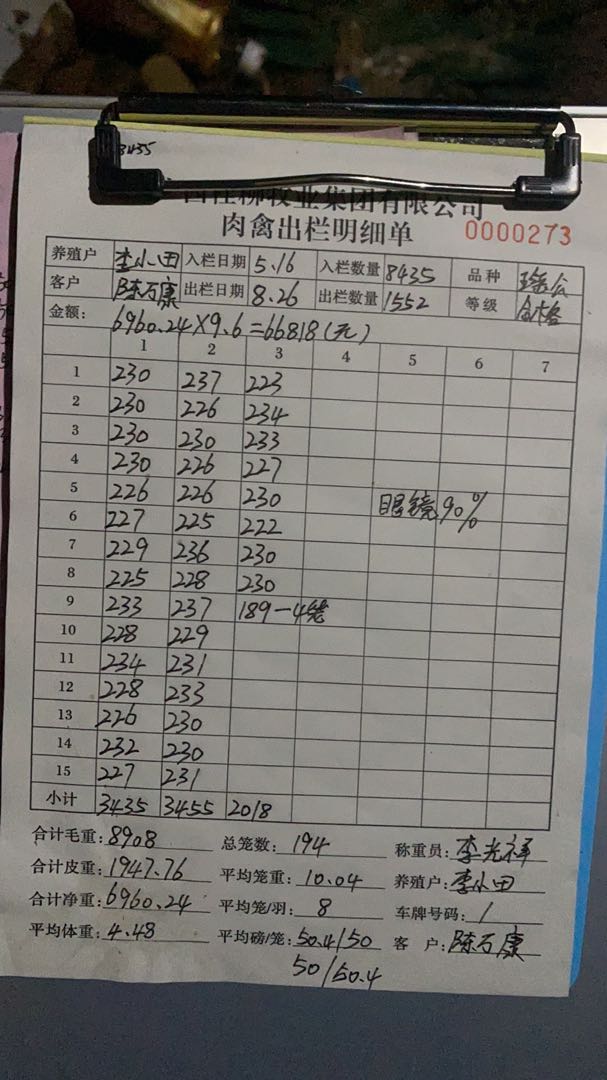 3435
牧业集团有限公司
肉禽出栏明细单 0000273
养殖户 李小田 入栏日期 5.16 入栏数量 8435 品种 瑶公
客户 陈石康 出栏日期 8.26 出栏数量 1552 等级 合格
金额: 6960.24×9.6=66818(元)
1 2 3 4 5 6 7
1 230 237 223
2 230 226 234
3 230 230 233
4 230 226 227
5 226 226 230 眼镜90%
6 227 225 222
7 229 236 230
8 225 228 230
9 233 237 189-4笼
10 228 229
11 234 231
12 228 233
13 226 230
14 232 230
15 227 231
小计 3435 3455 2018
合计毛重: 8908 总笼数: 194 称重员: 李光祥
合计皮重: 1947.76 平均笼重: 10.04 养殖户: 李小田
合计净重: 6960.24 平均笼/羽: 8 车牌号码: /
平均体重: 4.48 平均磅/笼: 50.4/50 客 户: 陈石康
50/50.4